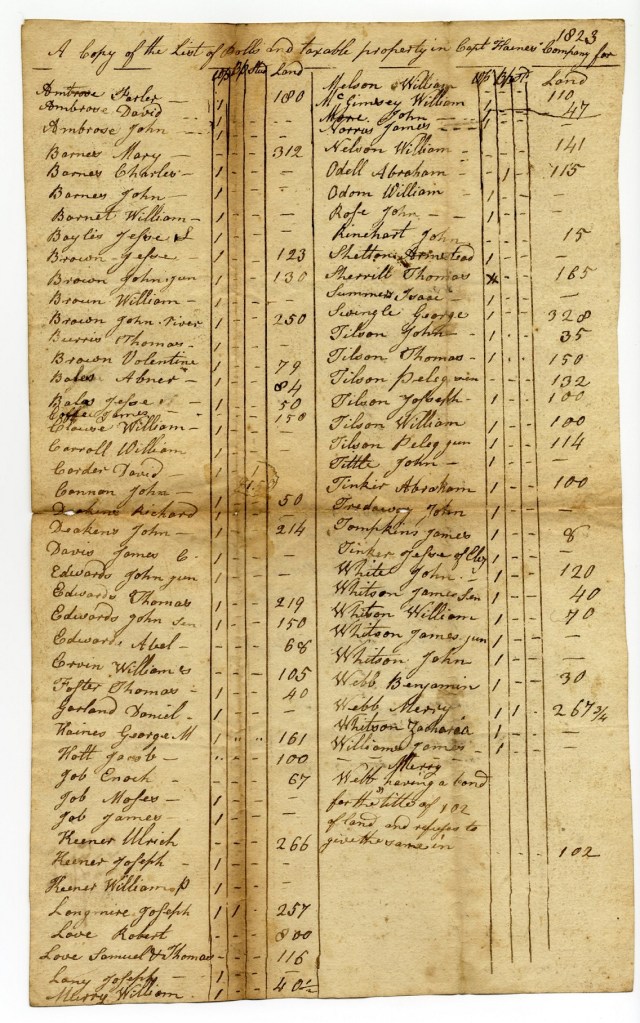 1823
A Copy of the List of Polls and taxable property in Capt Haines Company for
W P B P Stud Land
Ambrose Farler - 1 - - 180
Ambrose David - 1 - - -
Ambrose John - 1 - - -
Barnes Mary - - - 312
Barnes Charles - 1 - - -
Barnes John - 1 - - -
Barnet William - 1 - - -
Bayles Jesse S 1 - -
Brown Jesse - 1 - - 123
Brown John jun 1 - - 130
Brown William - 1 - - -
Brown John River 1 - - 250
Burris Thomas - 1 - - -
Brown Volentine 1 - - 79
Bales Abner 1 - - 84
Bales Jesse 1 - - 50
James - 150
Clouse William - 1 - - -
Carroll William 1 - - -
Corder David 1 - - -
Connon John - 1 - 1
Deakens Richard 1 - - 50
Deakens John - 1 - - 214
Davis James C. 1 - - -
Edwards John jun 1 - - -
Edwards Thomas 1 - - 219
Edwards John Sen - - - 150
Edwards Abel - 1 - - 68
Ervin William 1 - - 105
Foster Thomas - 1 - - 40
Garland Daniel - 1 - - -
Haines George M 1 " " 161
Hott Jacob - " - - 100
Job Enoch - 1 - - 67
Job Moses - 1 - - -
Job James - 1 - - -
Keener Ulrich - - - 266
Keener Joseph - 1 - - -
Keener William P 1 - - -
Longmire Joseph 1 1 - 257
Love Robert - - - 800
Love Samuel & Thomas - - - 116
Lany Joseph - 1 - - -
Merry William 1 - - 40 1/2
W P B P St Land
Melson William 110
McGimsey William 1 47
More John - 1
Norris James - 1
Nelson William - 141
Odell Abraham - - 1 - 115
Odom William 1 - - -
Rose John - 1 - - -
Rinehart John - - - 15
Shelton Armstead 1 - - -
Sherrill Thomas - - 165
Summers Isaac 1 - - -
Swingle George 1 - - 328
Tilson John - 1 - - 35
Tilson Thomas - 1 - - 150
Tilson Peleg 132
Tilson Joseph - 1 - - 100
Tilson William 1 - - 100
Tilson Peleg jun 1 - - 114
Tittle John - 1 - - -
Tinker Abraham 1 - - 100
Tredaway John 1 - - -
Tompkins James 1 - - 8
Tinker Jesse of Eley 1 - - -
White John - 1 - - 120
Whitson James Sen - - - 40
Whitson William 1 - - 70
Whitson James jun 1 - - -
Whitson John 1 - - -
Webb Benjamin 1 - - 30
Webb Merry - 1 1 - 267 3/4
Whitson Zacharia 1 - -
Williams James - 1 - - -
Merry
Webb having a bond
for the title of 102
of land and refuses to
give the same in
102